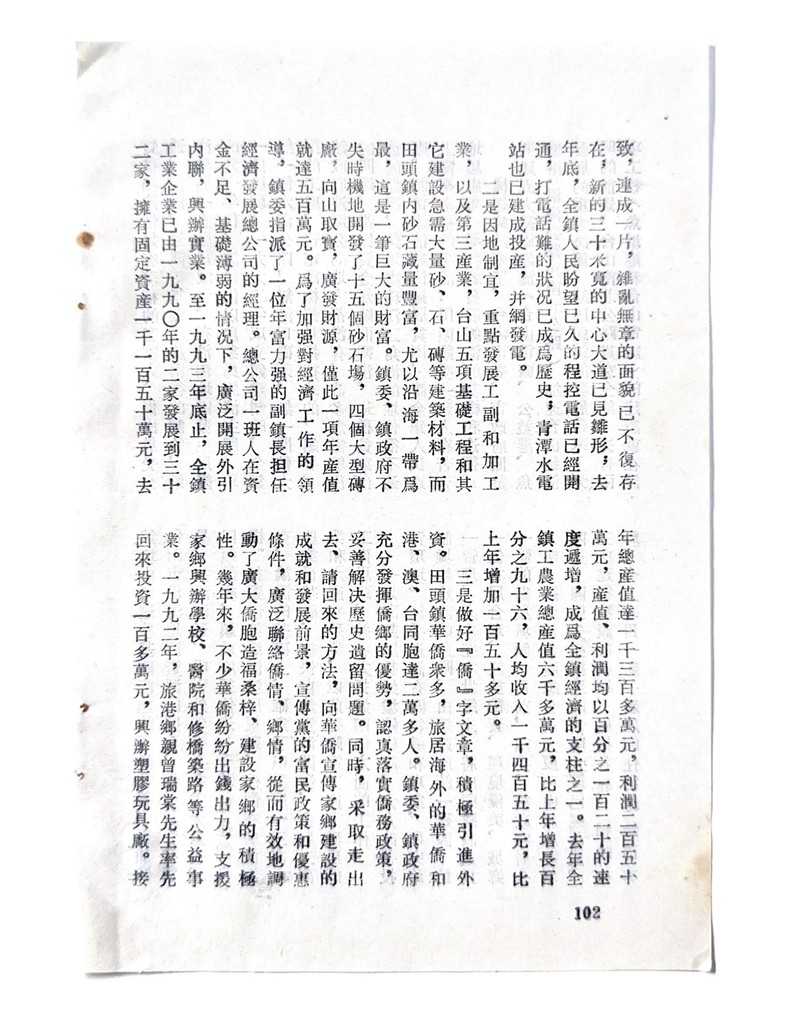 致，連成一片，雜亂無章的面貌已不復存
在，新的三十米寬的中心大道已見雛形；去
年底，全鎮人民盼望已久的程控電話已經開
通，打電話難的狀况已成爲歷史；青潭水電
站也已建成投産，并網發電。
二是因地制宜，重點發展工副和加工
業，以及第三産業，台山五項基礎工程和其
它建設急需大量砂、石、磚等建築材料，而
田頭鎮内砂石藏量豐富，尤以沿海一帶爲
最，這是一筆巨大的財富。鎮委、鎮政府不
失時機地開發了十五個砂石場，四個大型磚
廠，向山取寶，廣發財源，僅此一項年産值
就達五百萬元。爲了加强對經濟工作的領
導，鎮委指派了一位年富力强的副鎮長担任
經濟發展總公司的經理。總公司一班人在資
金不足、基礎薄弱的情况下，廣泛開展外引
内聯，興辦實業。至一九九三年底止，全鎮
工業企業已由一九九〇年的二家發展到三十
二家，擁有固定資産一千一百五十萬元，去
年總産值達一千三百多萬元，利潤二百五十
萬元，産值、利潤均以百分之一百二十的速
度遞增，成爲全鎮經濟的支柱之一。去年全
鎮工農業總産值六千多萬元，比上年增長百
分之九十六，人均收入一千四百五十元，比
上年增加一百五十多元。
三是做好『僑』字文章，積極引進外
資。田頭鎮華僑衆多，旅居海外的華僑和
港、澳、台同胞達二萬多人。鎮委、鎮政府
充分發揮僑鄉的優勢，認真落實僑務政策，
妥善解决歷史遺留問題。同時，采取走出
去、請回來的方法，向華僑宣傳家鄉建設的
成就和發展前景，宣傳黨的富民政策和優惠
條件，廣泛聯絡僑情、鄉情，從而有效地調
動了廣大僑胞造福桑梓、建設家鄉的積極
性。幾年來，不少華僑紛紛出錢出力，支援
家鄉興辦學校、醫院和修橋築路等公益事
業。一九九二年，旅港鄉親曾瑞棠先生率先
回來投資一百多萬元，興辦塑膠玩具廠。接
102